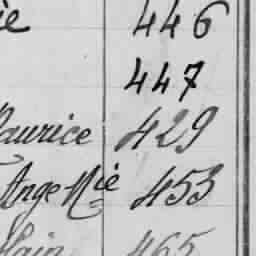 ie 446
447
Maurice 429
Ange Mie 453
Alain 465